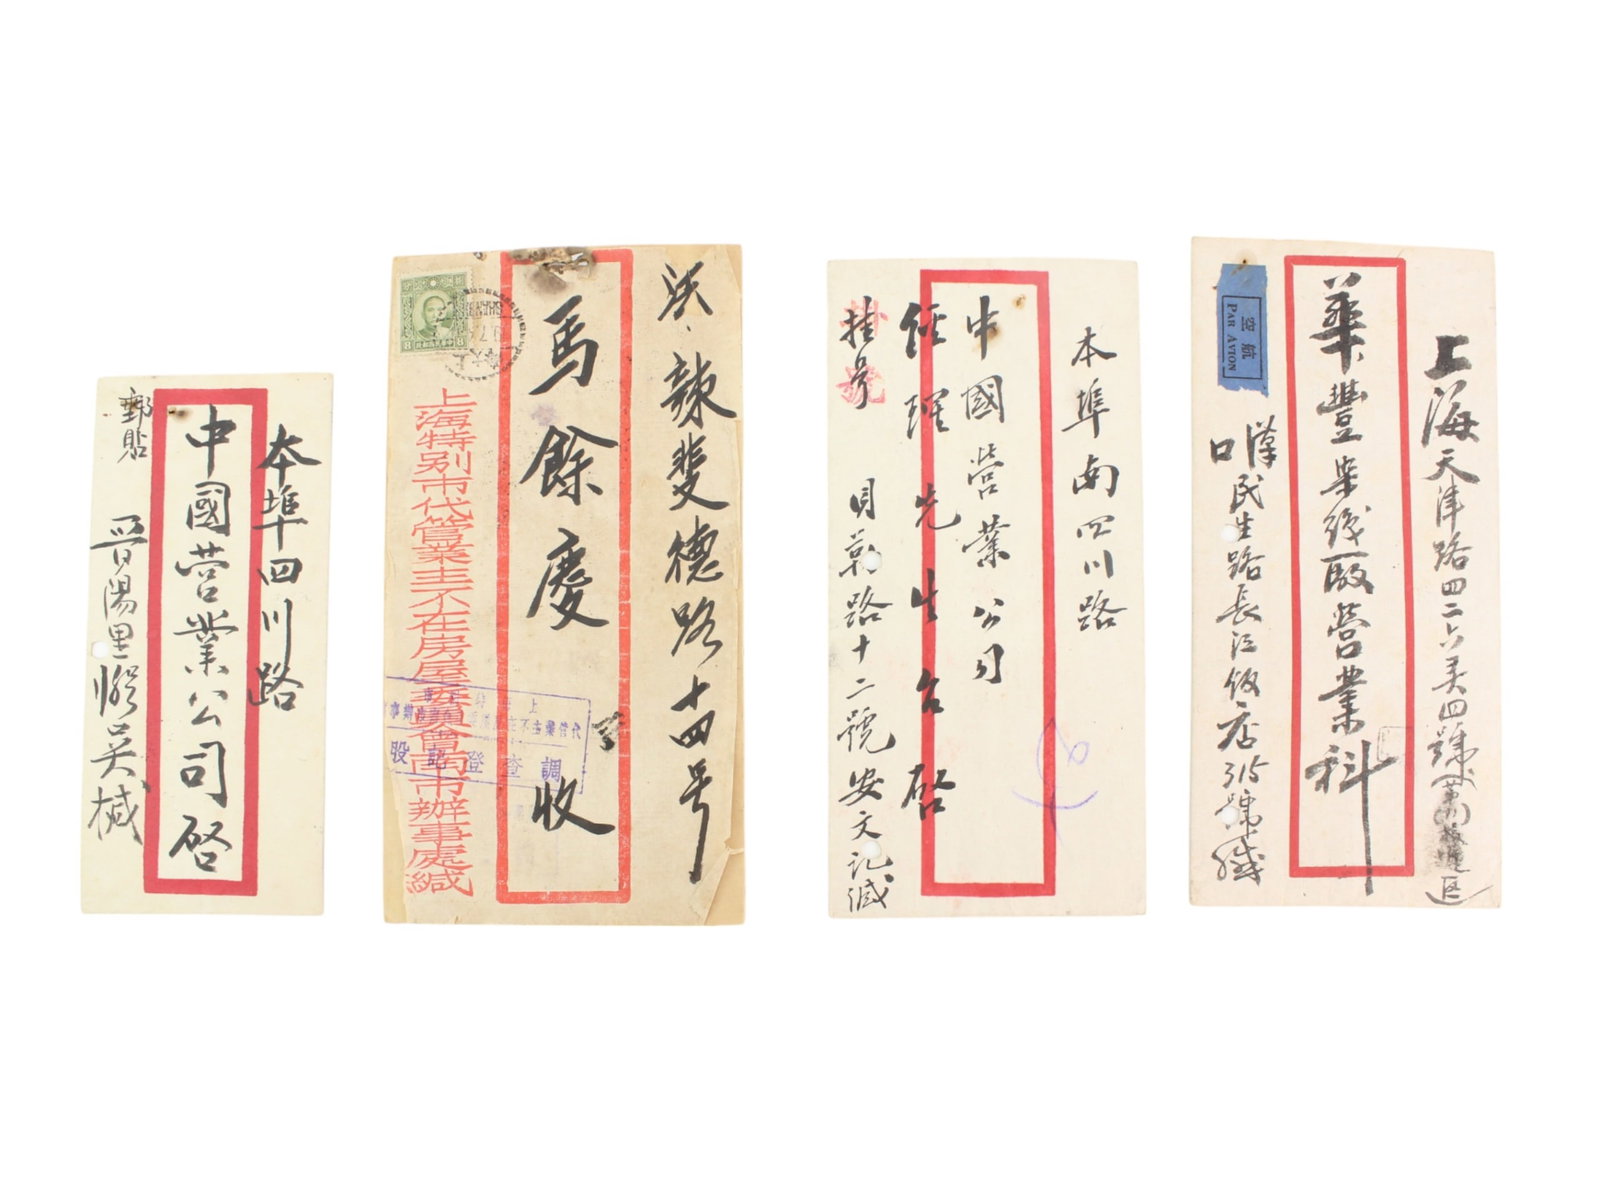 本埠四川路
中國营業公司啓
郵貼
晋陽里
法
辣斐德路十四号
馬餘慶
收
8
上海特别市代管業主不在房屋委員會南市辦事處緘
調查登記股
本埠南四川路
中國营業公司
經理先生台啓
掛號
挂号
貝勒路十二號安文記緘
上海天津路四二六弄四號
華豐染織廠营業科
空航
PAR AVION
漢口民生路長江飯店315號